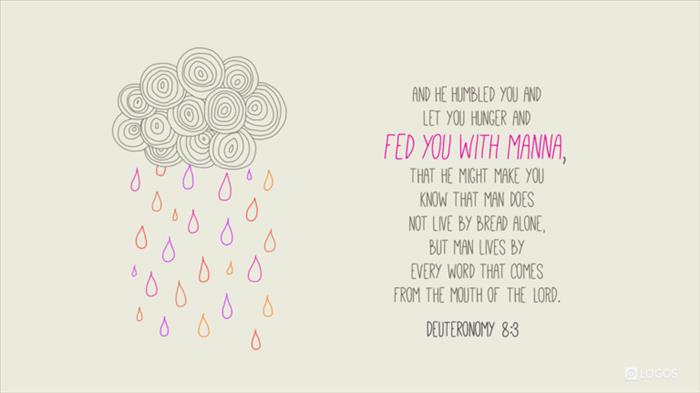 AND HE HUMBLED YOU AND
LET YOU HUNGER AND
FED YOU WITH MANNA,
THAT HE MIGHT MAKE YOU
KNOW THAT MAN DOES
NOT LIVE BY BREAD ALONE,
BUT MAN LIVES BY
EVERY WORD THAT COMES
FROM THE MOUTH OF THE LORD.
DEUTERONOMY 8:3
LOGOS